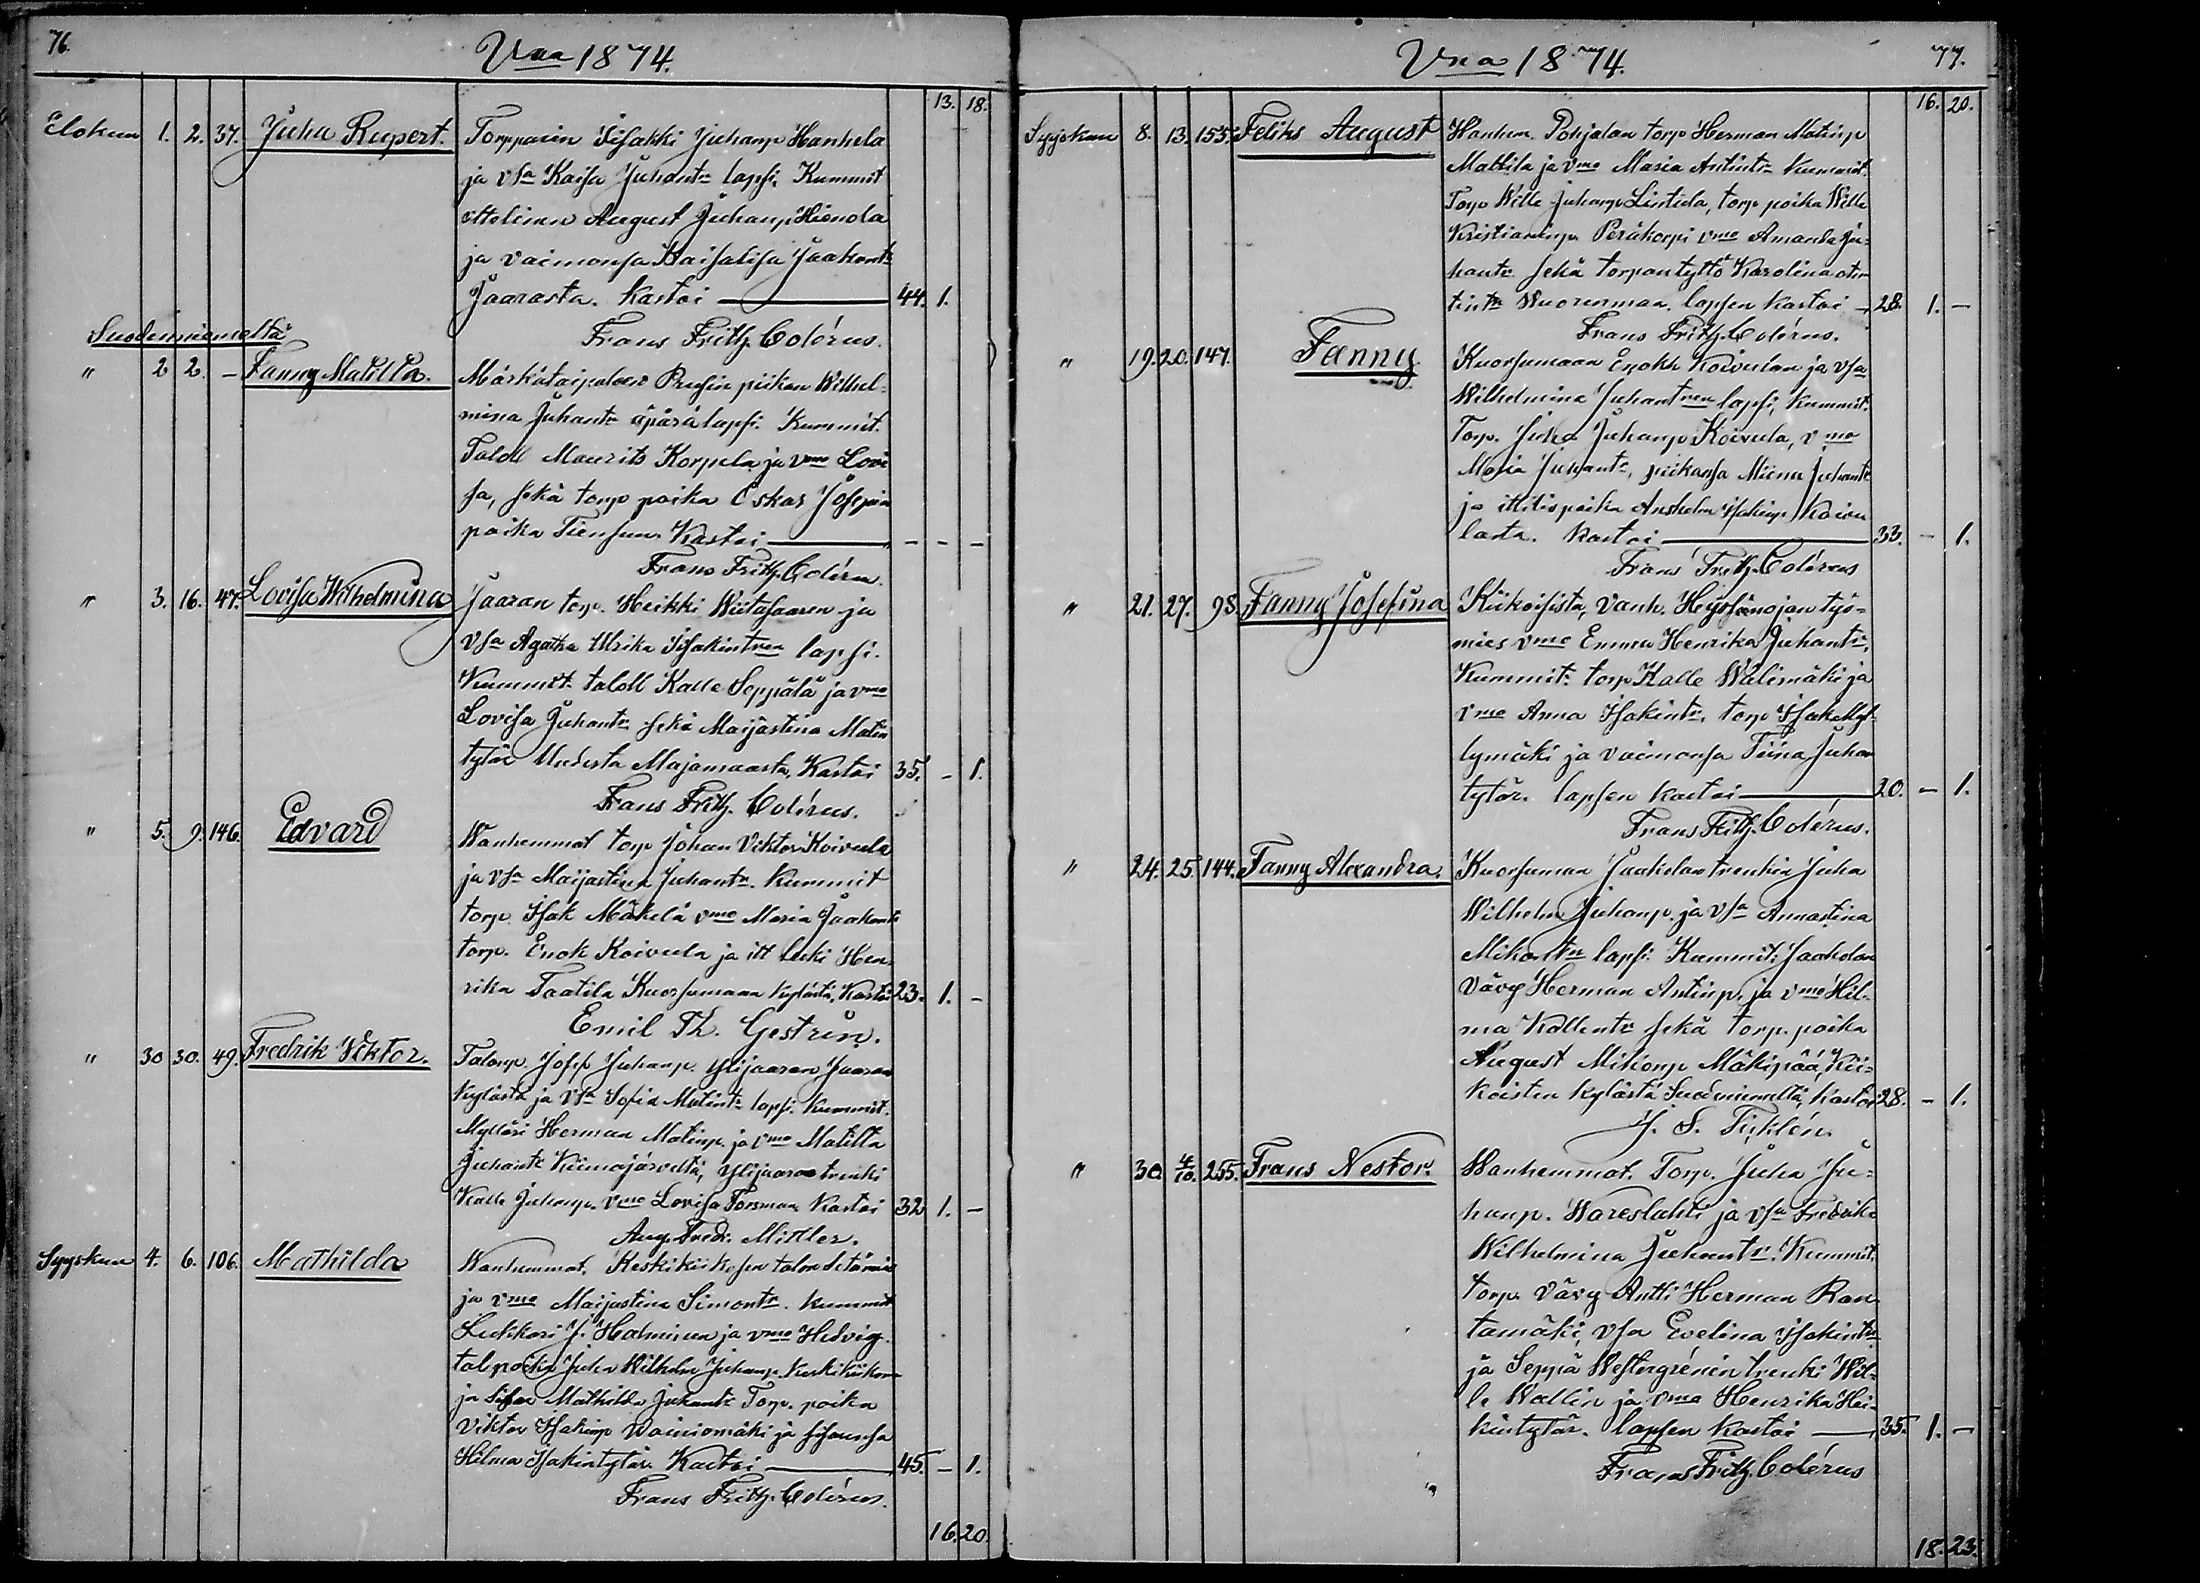 76.
Vna 1874.
13. 18.
Elokun 1. 2. 37. Juha Rupert. Torpparin Iisakki Juhanp Hanhela
ja vsa Kaisa Juhantr lapsi. Kummit
ittelinen August Juhanp Hienola
ja vaimonsa Kaisalisa Jaakontr
Jaarasta. Kastoi 44. 1.
Frans Fritz. Colérus.
Suodenniemeltä
" 2 2. - Fanny Matilta. Märkätaipaleen piikan Wilhel-
mina Juhantr äpärä lapsi. Kummit.
Taloll Maurits Korpela ja vmo Lovi
sa, sekä torp poika Oskar Josepin
poika Tiensuu. Kastoi - - -
Frans Fritz. Colérus.
" 3. 16. 47. Lovisa Wilhelmina Jaaran torp. Heikki Wiitasaaren ja
vsa Agatha Ulrika Iisakintren lapsi.
Kummit taloll Kalle Seppälä ja vmo
Lovisa Juhantr sekä Maijastina Matin
tytär Uudesta Majamaasta, Kastoi 35. - 1.
Frans Fritz. Colérus.
" 5. 9. 146. Edvard Wanhemmat torp Johan Viktor Koivula
ja vsa Maijastina Juhantr. Kummit
torp. Isak Mäkelä vmo Maria Jaakontr
torp. Enok Koivula ja itt leski Hen-
rika Taatila Kuorsumaan kylästä, Kastoi 23. 1. -
Emil Th. Gestrin.
" 30 30. 49. Fredrik Viktor. Talonp. Josef Juhanp. Ylijaaran Jaaran
kylästä ja vsa Sofia Matintr lapsi. Kummit.
Mylläri Herman Matinp. ja vmo Matilta
Juhantr Kiimajärveltä, Ylijaaran trenki
Kalle Juhanp. vmo Lovisa Forsman Kastoi 32 1. -
Aug. Fredr. Mittler.
Syyskun 4. 6. 106. Mathilda Wanhemmat. Keskikiikosen talon
ja vmo Maijastina Simontr. Kummit
Lukkari J. Halminen ja vmo Hedvig.
tal poika Juha Wilhelm Juhanp. Keskikiikonen
ja sisar Mathilda Juhantr Torp. poika
Viktor Isakinp Wainiomäki ja sisarensa
Hilma Isakintytär. Kastoi 45. - 1.
Frans Fritz. Colérus.
16. 20.
Vna 1874. 77.
16. 20.
Syyskun 8. 13. 155. Feliks August Wanhem. Pohjalan torp Herman Matinp
Mattila ja vmo Maria Antintr Kummit.
Torp Wille Juhanp Lintula, torp poika Wille
Kristianinp. Peräkorpi vmo Amanda Ju-
hantr sekä torpantyttö Karolina
tintr Wuorenmaa. lapsen kastoi 28. 1. -
Frans Fritz. Colérus.
" 19. 20. 147. Fanny Kuorsumaan Enokki Koivulan ja vsa
Wilhelmina Juhantren lapsi, Kummit.
Torp. Juha Juhanp Koivula, vmo
Maria Juhantr, piikansa Miina Juhantr
ja ittilispoika Anshelm Isakinp Koivu
lasta. Kastoi 33. - 1.
Frans Fritz. Colérus
" 21. 27. 98. Fanny Josefina Kiikoisista, Vanh. Heyhänojan työ-
mies vmo Emma Henrika Juhantr,
Kummit: torp Kalle Wälimäki ja
vmo Anna Isakintr. torp Isak Myl-
lymäki ja vaimonsa Tiina Juhan
tytär. lapsen kastoi 20. - 1.
Frans Fritz. Colérus.
" 24. 25. 144. Fanny Alexandra. Kuorsuman Jaakolan trenkin Juha
Wilhelm Juhanp. ja vsa Annastina
Mikontr lapsi. Kummit: Jaakolan
vävy Herman Antinp. ja vmo Hil-
ma Kallentr sekä torp. poika
August Mikonp Mäkipää, Kii-
koisten kylästä Suodenniemeltä, Kastoi 28. - 1.
J. S. Ticklén.
" 30. 4/10. 255. Frans Nestor. Wanhemmat. Torp. Juha Ju-
hanp. Wareslahti ja vsa Fredrika
Wilhelmina Juhantr. Kummit.
torp. vävy Antti Herman Ran-
tamäki, vsa Evelina Isakintr
ja Seppä Westergrénin trenki Wil-
le Wallin ja vmo Henrika Hei-
kintytär. lapsen kastoi 35. 1. -
Frans Fritz. Colérus
18. 23.